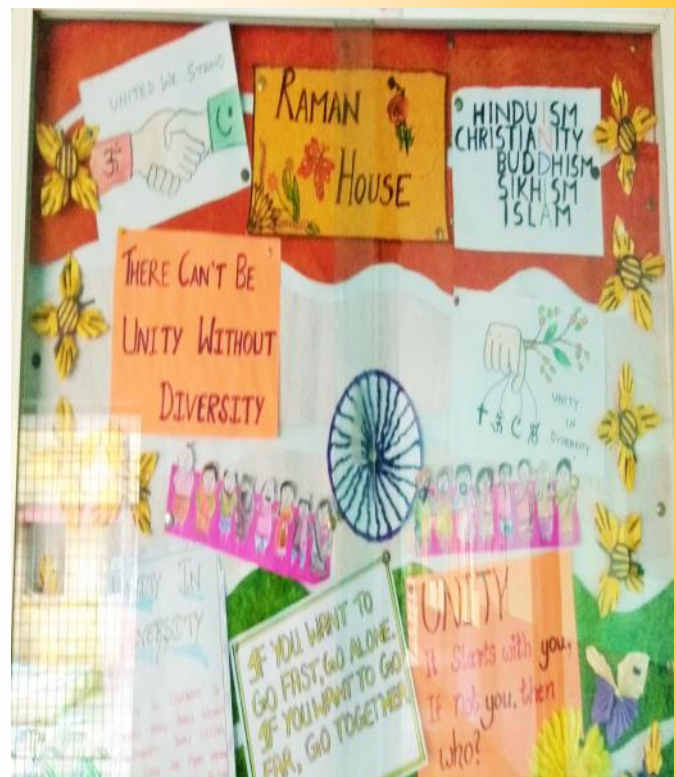 UNITED WE STAND
ॐ
RAMAN
HOUSE
HINDUISM
CHRISTIANITY
BUDDHISM
SIKHISM
ISLAM
THERE CAN'T BE
UNITY WITHOUT
DIVERSITY
UNITY
IN
DIVERSITY
IN
IF YOU WANT TO
GO FAST, GO ALONE.
IF YOU WANT TO GO
FAR, GO TOGETHER
UNITY
It Starts with you,
If not you, then
who?